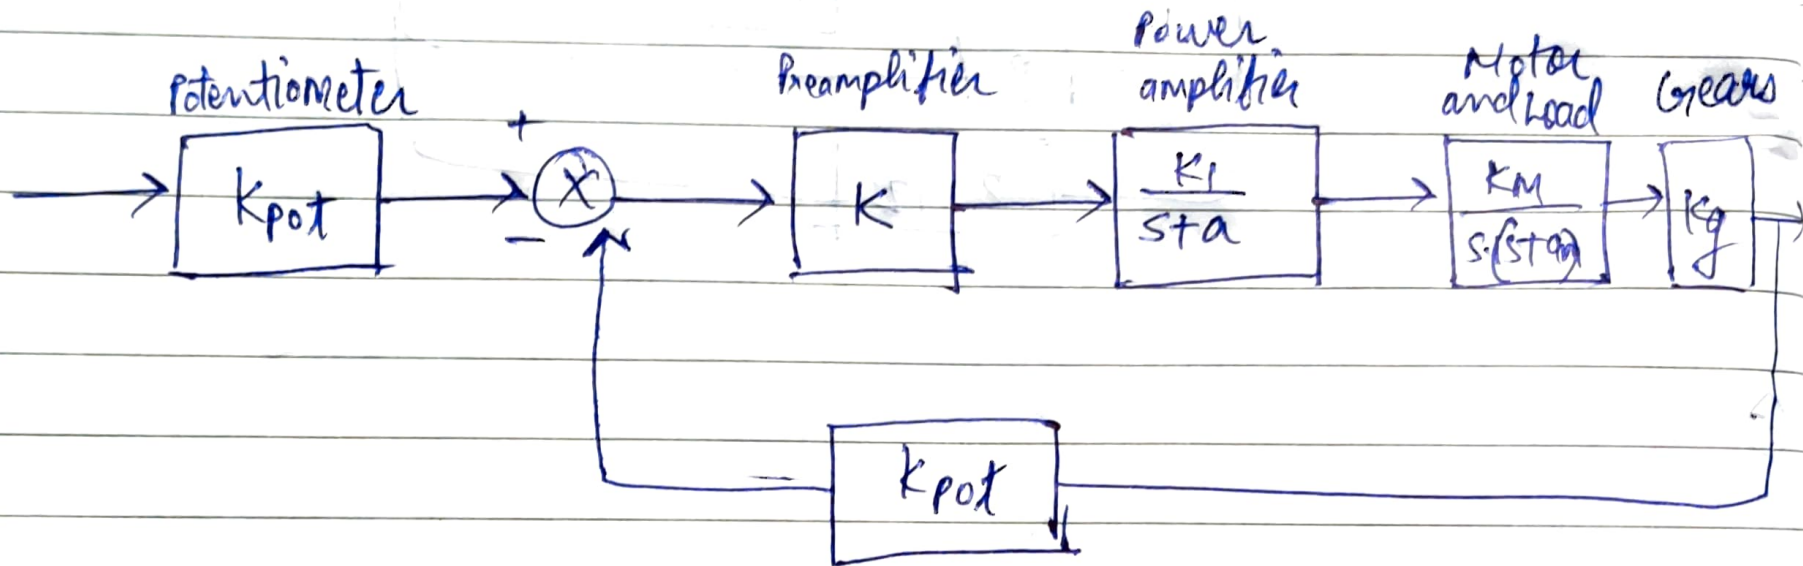 Potentiometer
Preamplifier
Power
amplifier
Motor
and Load
Gears
+
Kpot
X
K
K1
s+a
KM
s.(s+am)
Kg
−
Kpot